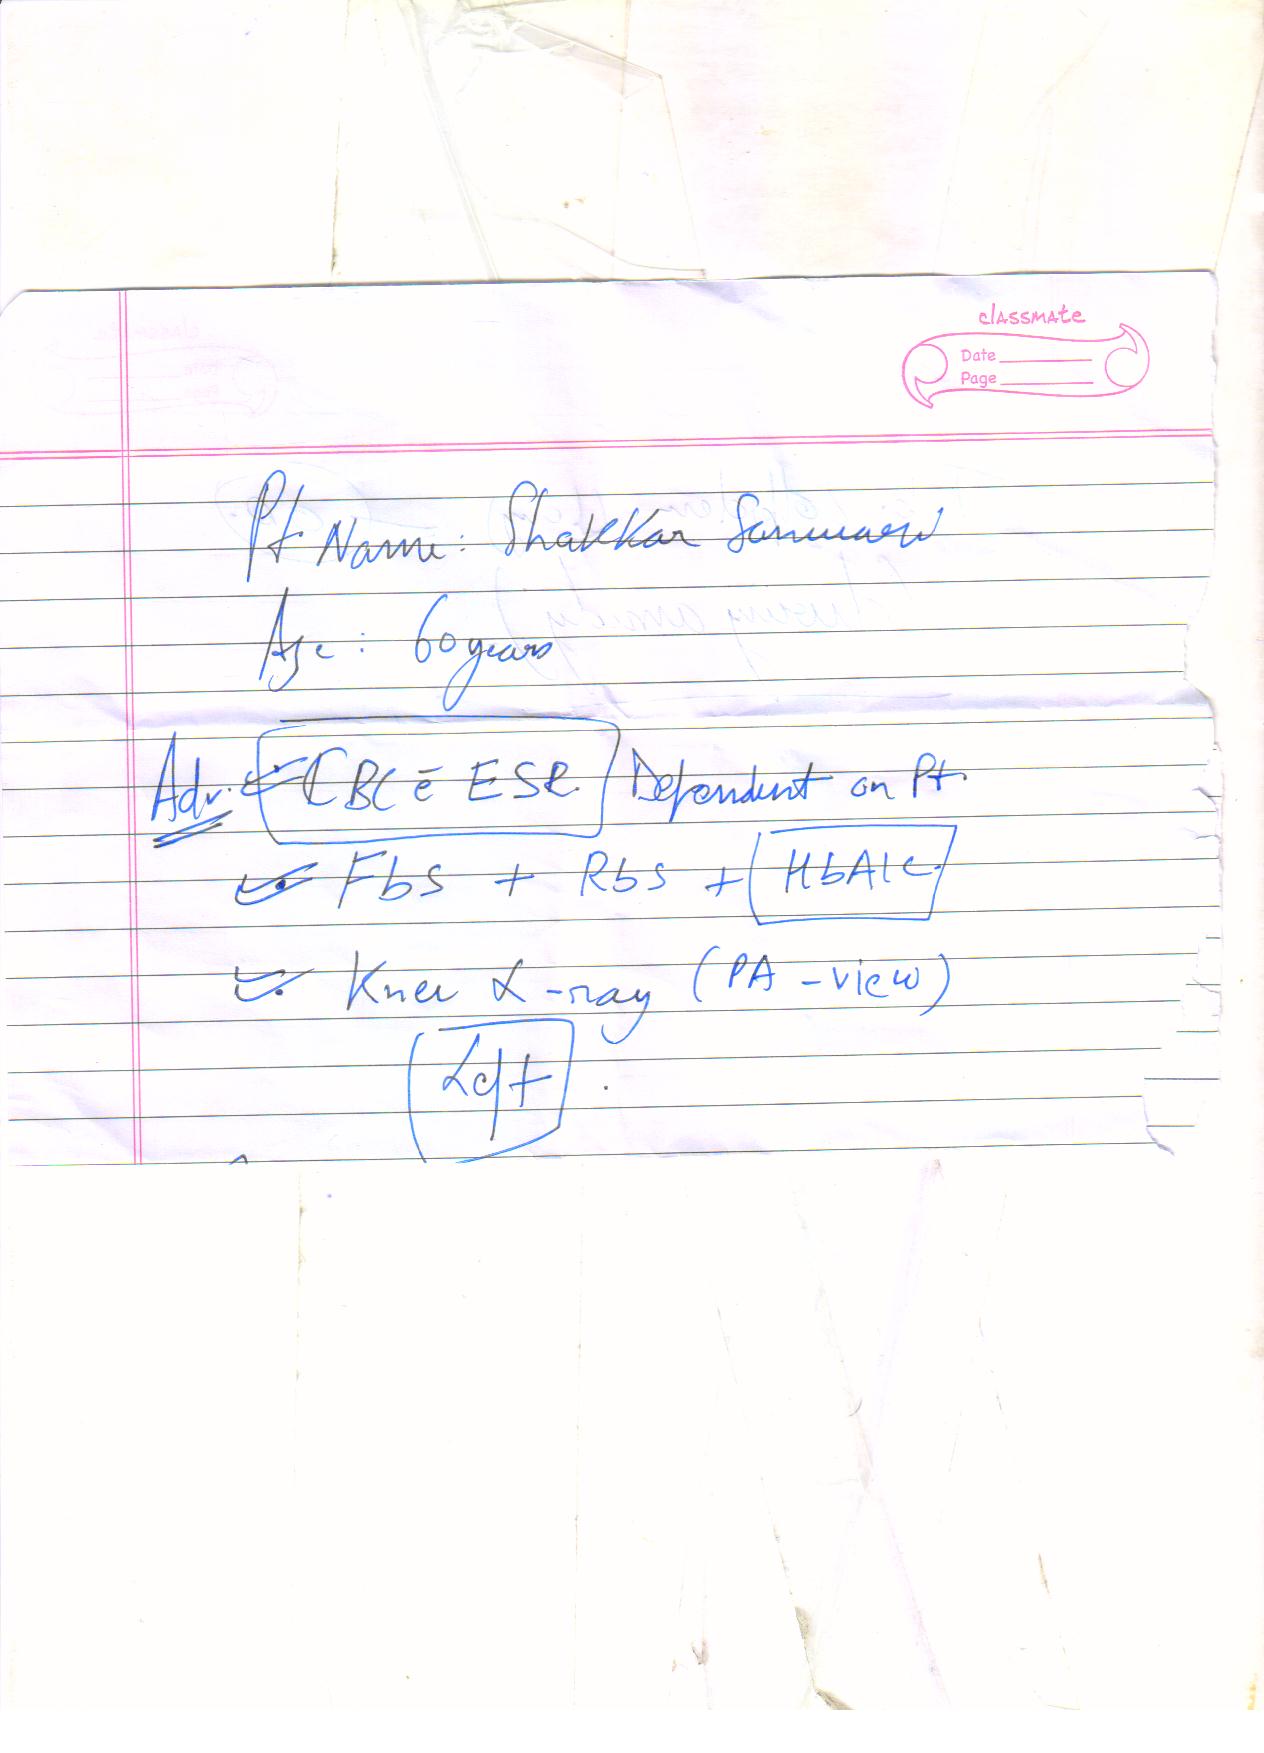 classmate
Date
Page
Pt Name: Shakkar
Age: 60 years
Adv. CBC ē ESR Dependent on Pt.
Fbs + Rbs + HbA1c
Knee X-ray (PA-view)
Left